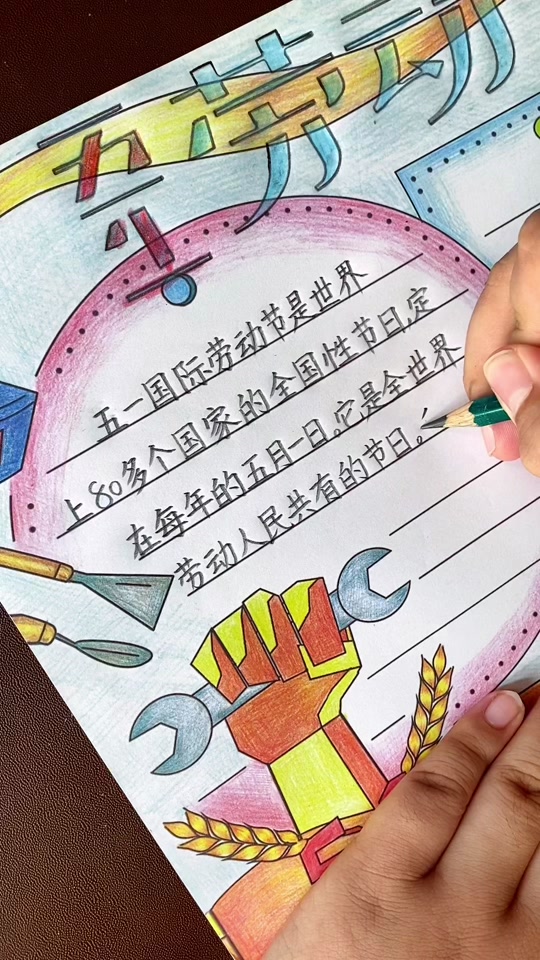 五一劳动
五一国际劳动节是世界
上80多个国家的全国性节日,定
在每年的五月一日。它是全世界
劳动人民共有的节日。